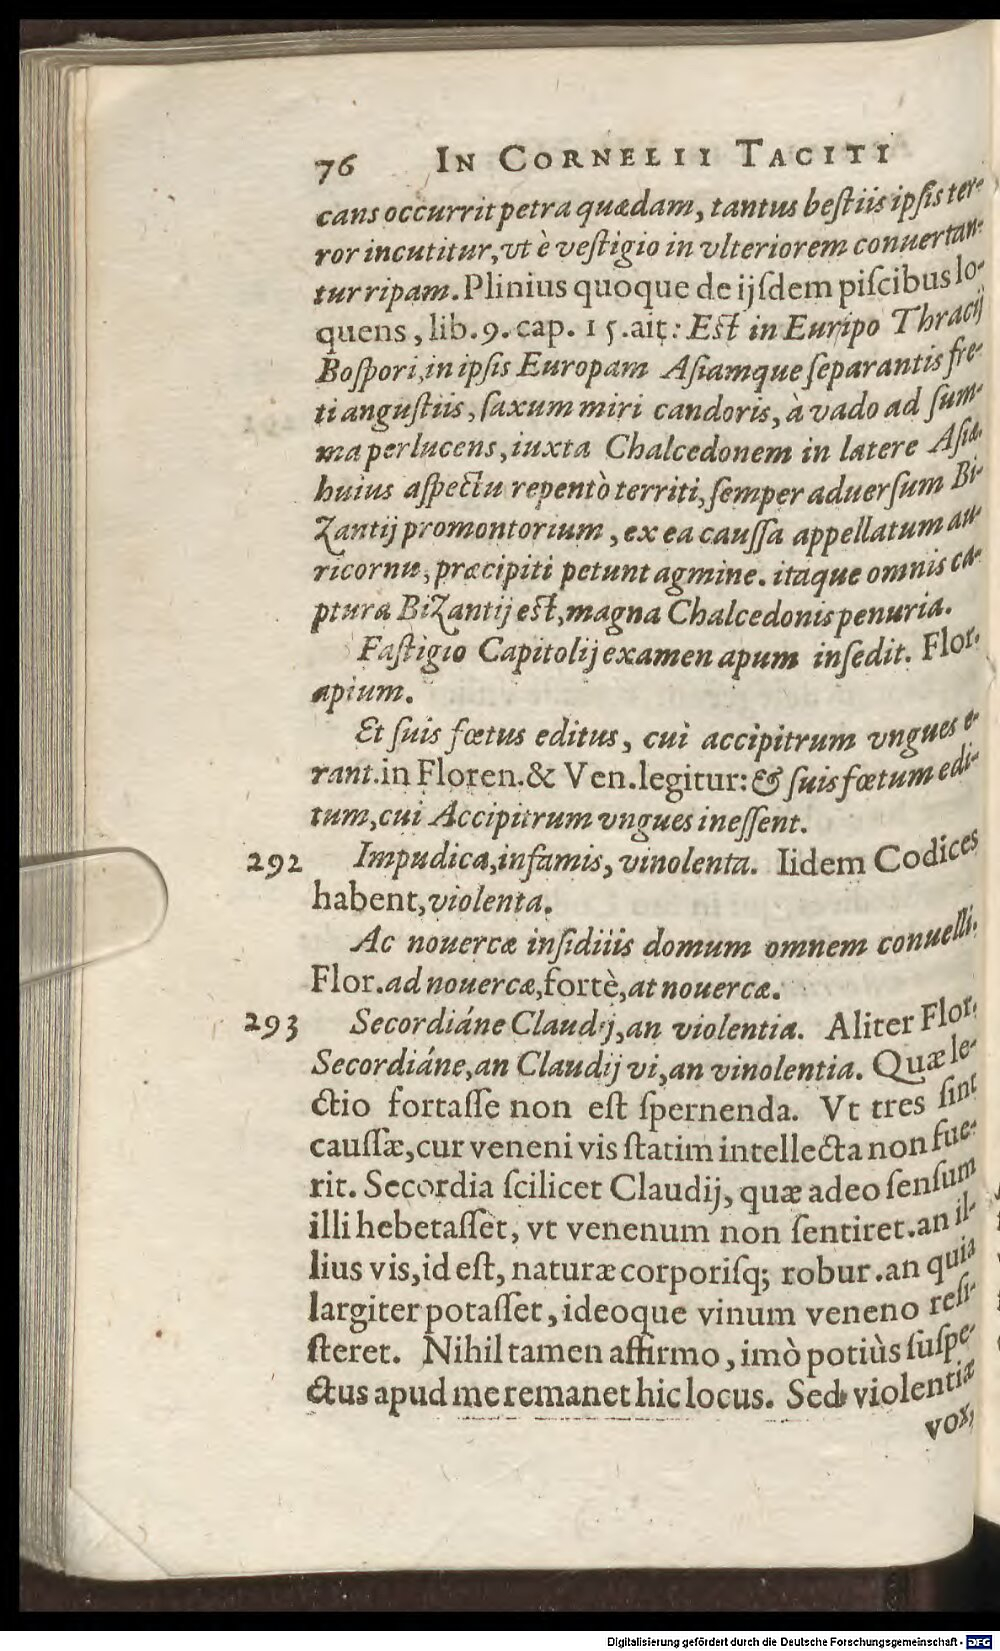 76 IN CORNELII TACITI
cans occurrit petra quædam, tantus beſtiis ipſis ter-
ror incutitur, vt è veſtigio in vlteriorem conuertan-
tur ripam. Plinius quoque de ijſdem piſcibus lo-
quens, lib. 9. cap. 15. ait: Eſt in Euripo Thracij
Boſpori, in ipſis Europam Aſiamque ſeparantis fre-
ti anguſtiis, ſaxum miri candoris, à vado ad ſum-
ma perlucens, iuxta Chalcedonem in latere Aſiæ.
huius aſpectu repentò territi, ſemper aduerſum Bi-
zantij promontorium, ex ea cauſſa appellatum au-
ricornu, præcipiti petunt agmine. itaque omnis ca-
ptura Bizantij eſt, magna Chalcedonis penuria.
Faſtigio Capitolij examen apum inſedit. Flor.
apium.
Et ſuis fœtus editus, cui accipitrum vngues e-
rant. in Floren. & Ven. legitur: & ſuis fœtum edi-
tum, cui Accipitrum vngues ineſſent.
292 Impudica, infamis, vinolenta. Iidem Codices
habent, violenta.
Ac nouercæ inſidiiis domum omnem conuelli.
Flor. ad nouercæ, fortè, at nouercæ.
293 Secordiáne Claudij, an violentia. Aliter Flor.
Secordiáne, an Claudij vi, an vinolentia. Quæ le-
ctio fortaſſe non eſt ſpernenda. Vt tres ſint
cauſſæ, cur veneni vis ſtatim intellecta non fue-
rit. Secordia ſcilicet Claudij, quæ adeo ſenſum
illi hebetaſſet, vt venenum non ſentiret. an il-
lius vis, id eſt, naturæ corporiſq; robur. an quia
largiter potaſſet, ideoque vinum veneno reſi-
ſteret. Nihil tamen affirmo, imò potiùs ſuſpe-
ctus apud me remanet hic locus. Sed violentiæ
vox,
Digitalisierung gefördert durch die Deutsche Forschungsgemeinschaft - DFG